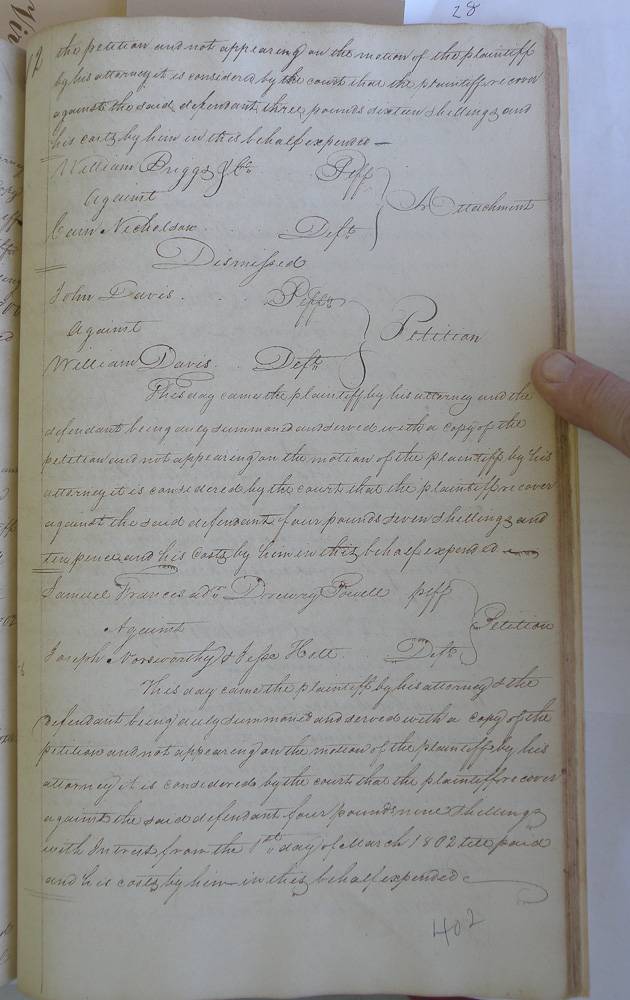 28
12 the petition and not appearing on the motion of the plaintiff
by his attorney it is considered by the court that the plaintiff recover
against the said defendant three pounds sixteen shillings and
his costs by him in this behalf expended
William Briggs & Co. Plff
Against Attachment
Carn Nicholson Deft.
Dismissed
John Davis Plff
Against Petition
William Davis Deft.
This day came the plaintiff by his attorney and the
defendant being duly summoned and served with a copy of the
petition and not appearing on the motion of the plaintiff by his
attorney it is considered by the court that the plaintiff recover
against the said defendant four pounds seven shillings and
ten pence and his costs by him in this behalf expended
Samuel Frances adr. Drewry Powell plff
Against Petition
Joseph Norsworthy & Jesse Holt Deft.
This day came the plaintiff by his attorney & the
defendant being duly summoned and served with a copy of the
petition and not appearing on the motion of the plaintiff by his
attorney it is considered by the court that the plaintiff recover
against the said defendant four pounds nine shillings
with Interest from the 1st day of March 1802 till paid
and his costs by him in this behalf expended
402